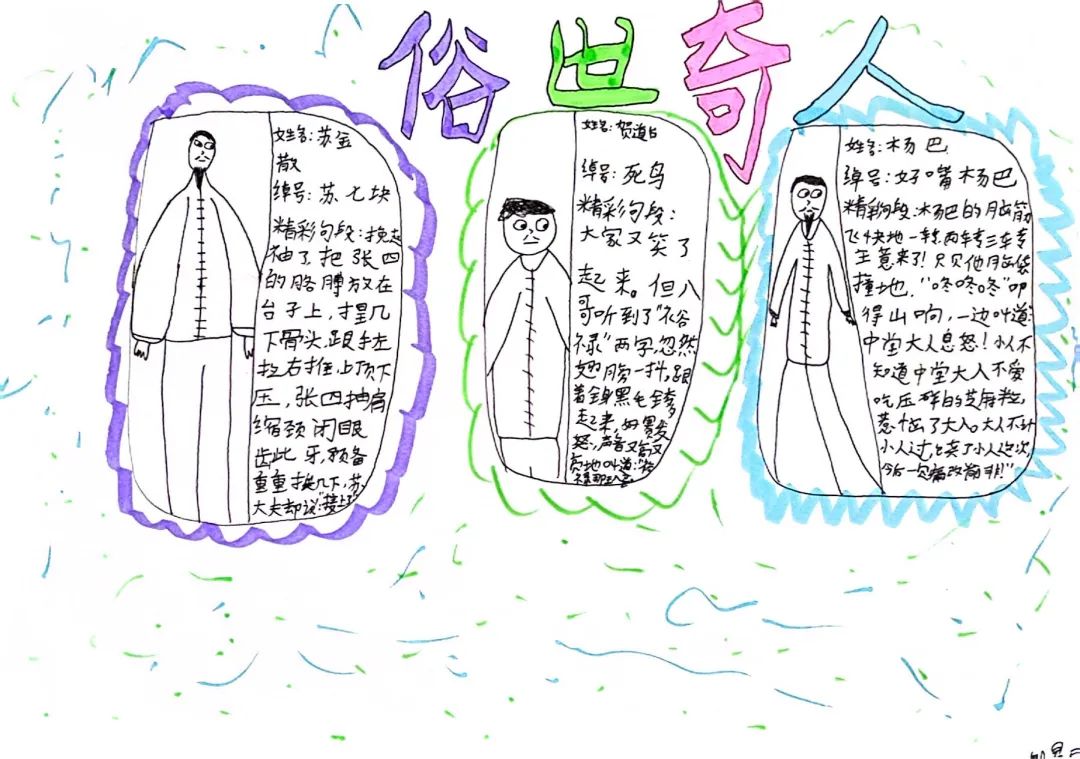 俗世奇人
姓名:苏金
散
绰号:苏七块
精彩句段:挽起
袖子,把张四
的胳膊放在
台子上,捏几
下骨头,跟手左
拉右推,上顶下
压,张四抽肩
缩颈闭眼
龇牙,预备
重重挨几下,苏
大夫却说:"接上了"
姓名:贺道台
绰号:死鸟
精彩句段:
大家又笑了
起来。但八
哥听到了"裕
禄"两字,忽然
翅膀一抖,跟
着全身黑毛全
起来,
怒,声音又高又
亮地叫道:
姓名:杨巴
绰号:好嘴杨巴
精彩句段:杨巴的脑筋
飞快地一转两转三转,
主意来了!只见他脑袋
撞地,"咚咚咚"叩
得山响,一边叫道:
中堂大人息怒!小人不
知道中堂大人不爱
吃压碎的芝麻粒,
惹恼了大人。大人不计
小人过,饶了小人这次,
今后一定痛改前非!"